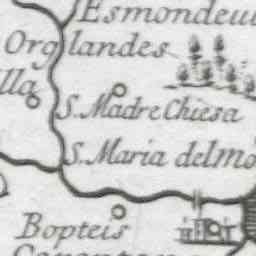 Esmondeu
Orglandes
lla
S. Madre Chiesa
S. Maria del mo
Bopteis
Carentan